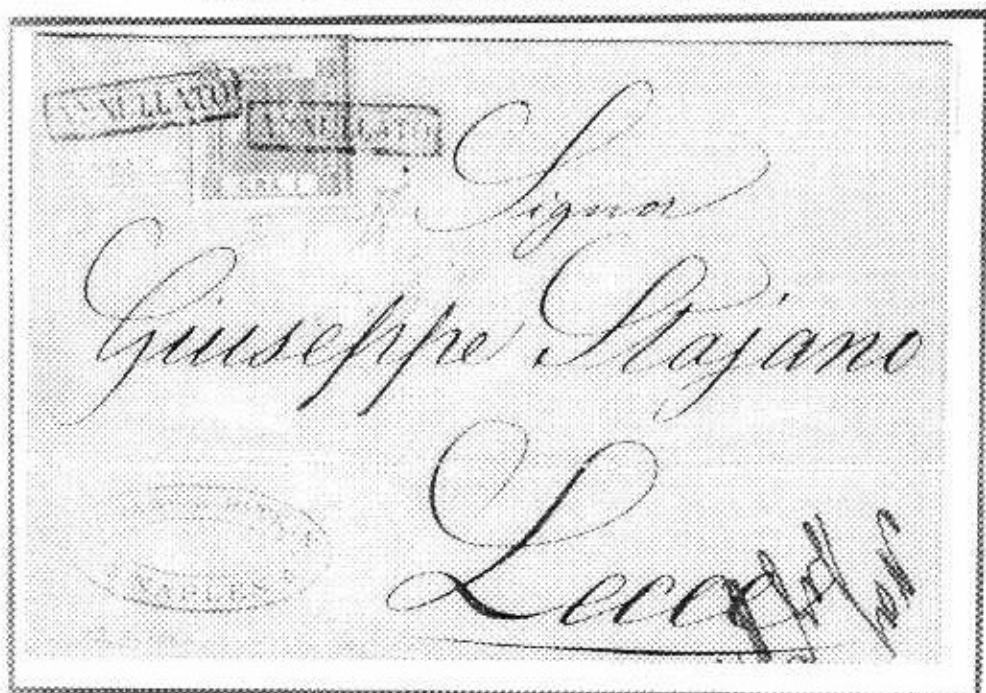 ANNULLATO
ANNULLATO
Signor
Giuseppe Stajano
Lecce
NAPLES